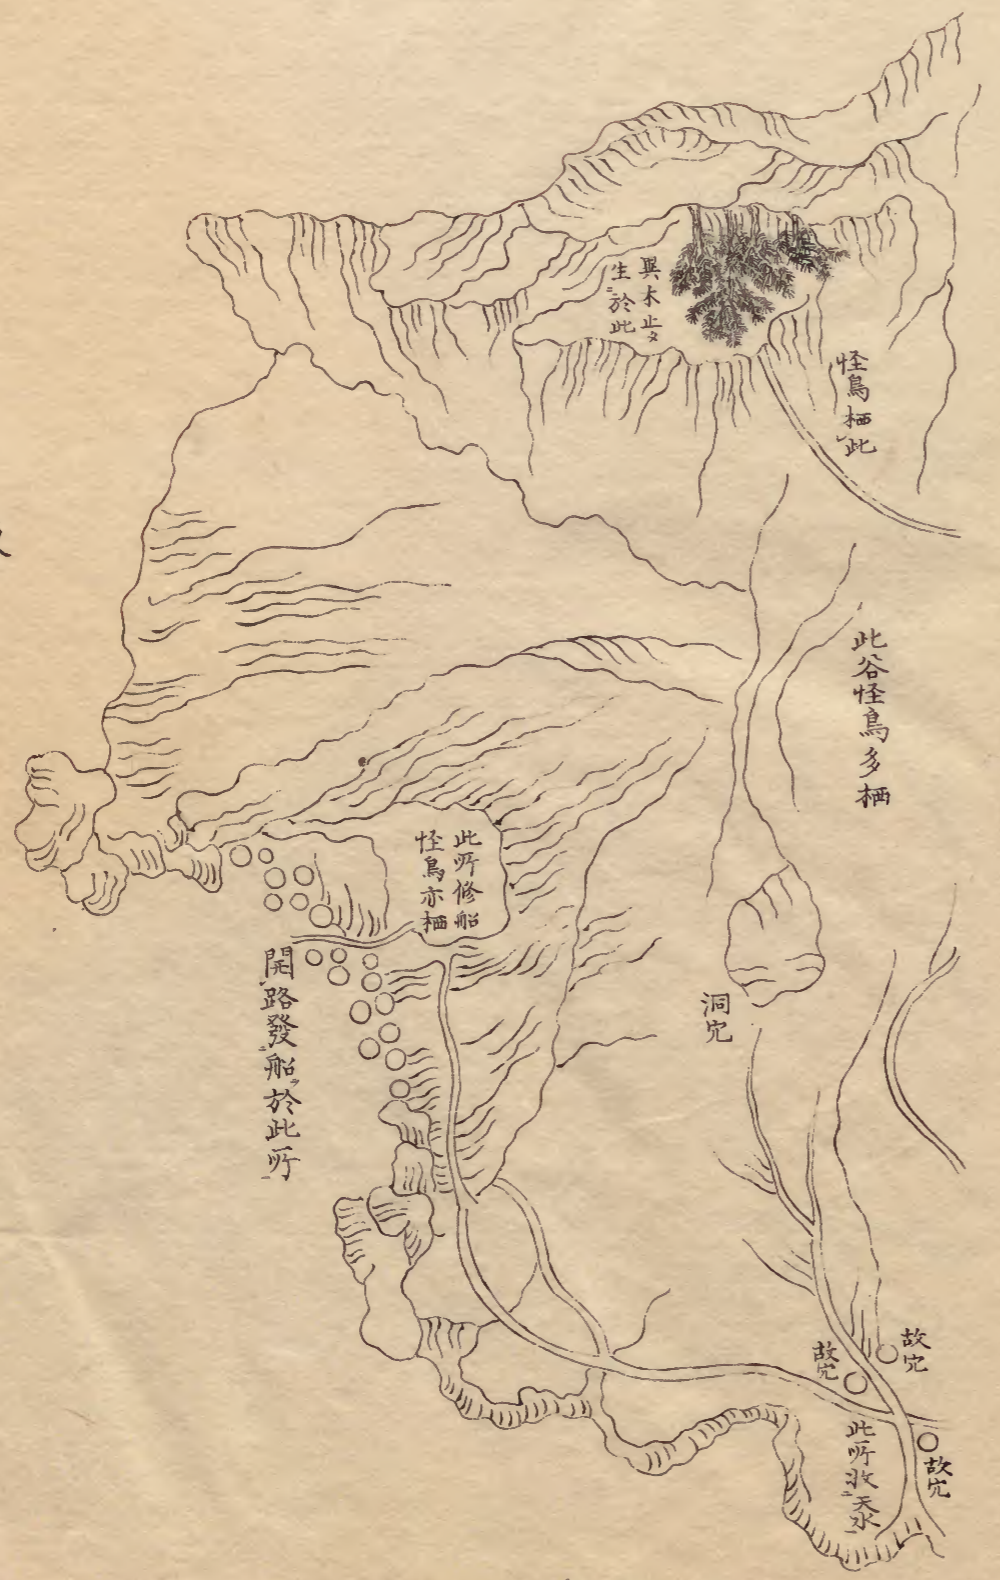 與木止〻
生於此
怪鳥栖此
此谷怪鳥多栖
此所修船
怪鳥亦栖
開路發船於此所
洞穴
故穴
故穴
故穴
此所收天水